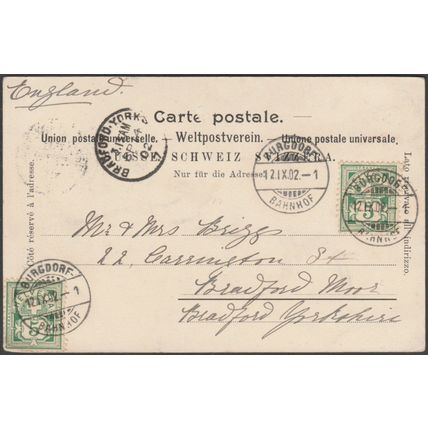 England.
Carte postale.
Union postale universelle. — Weltpostverein. — Unione postale universale.
SUISSE. SCHWEIZ SVIZZERA.
Nur für die Adresse.
Côté réservé à l'adresse.
Lato riservato all'indirizzo.
BRADFORD. YORKS
BURGDORF
12.IX.02.–1
BAHNHOF
BURGDORF
12.IX.02.–1
BAHNHOF
5
Mr & Mrs Briggs
22, Carrington St
Bradford Moor
Bradford Yorkshire
BURGDORF
12.IX.02.–1
BAHNHOF
5